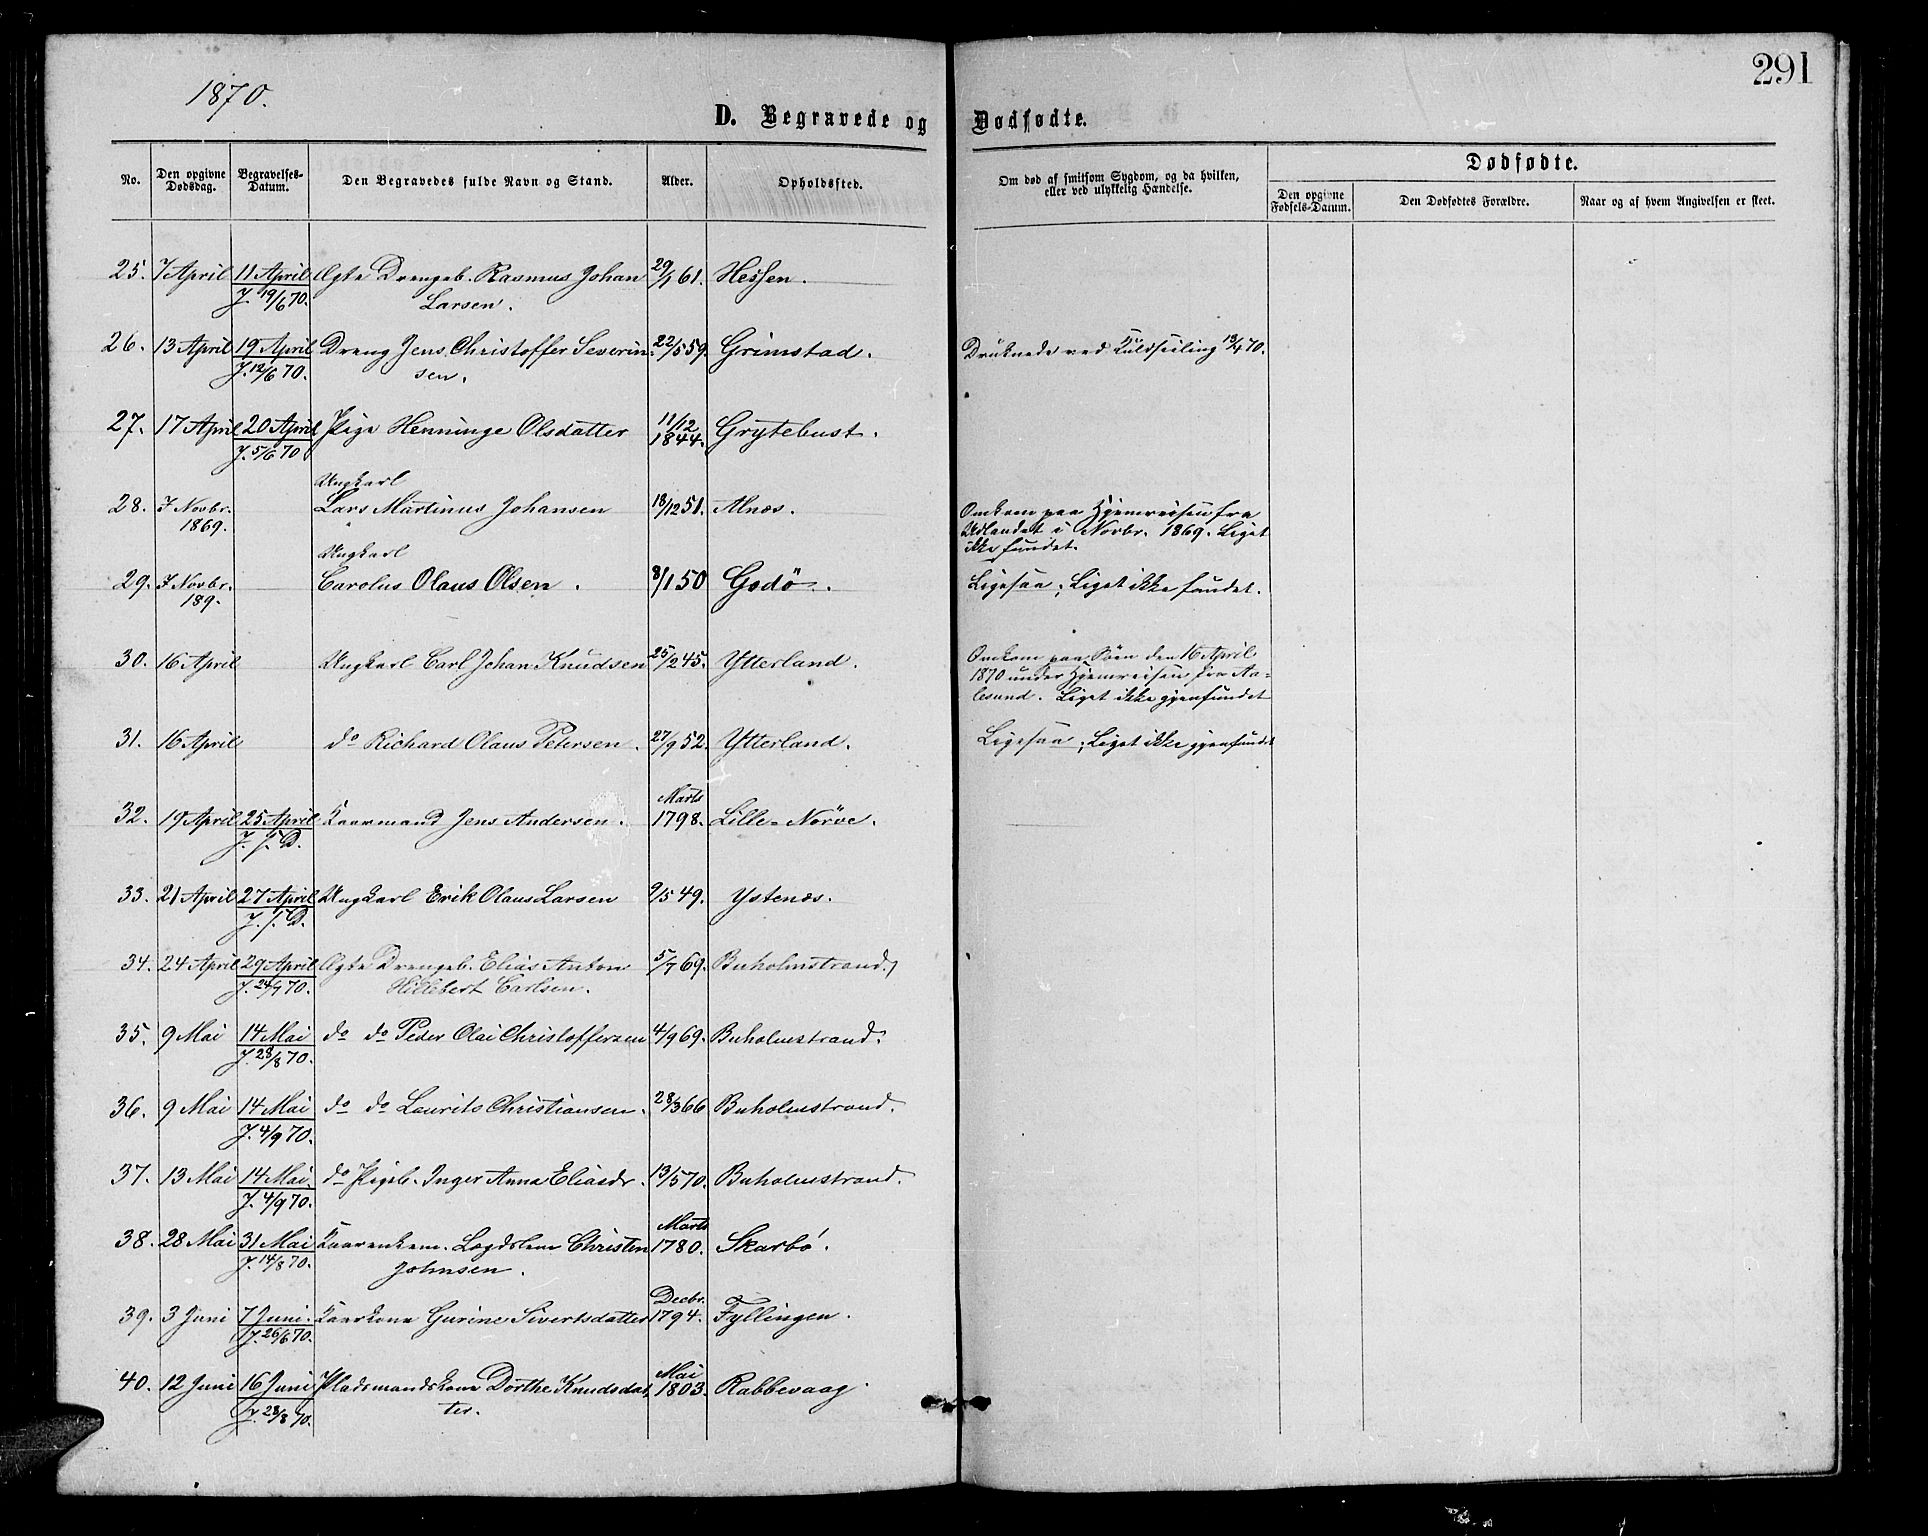 1870.
291
D. Begravede og Dødfødte.
No.
Den opgivne Dødsdag.
Begravelses-Datum.
Den Begravedes fulde Navn og Stand.
Alder.
Opholdssted.
Om død af smitsom Sygdom, og da hvilken, eller ved ulykkelig Hændelse.
Dødfødte.
Den opgivne Fødsels-Datum.
Den Dødfødtes Forældre.
Naar og af hvem Angivelsen er skeet.
25. 7 April 11 April Ægte Drengeb. Rasmus Johan 29/1 61. Hessen.
J. 19/6 70. Larsen.
26. 13 April 19 April Dreng Jens Christoffer Severin- 22/5 59. Grimstad. Druknede ved Kuldseiling 13/4 70.
J. 12/6 70. sen.
27. 17 April 20 April Pige Henninge Olsdatter 11/12 1844. Grytebust.
J. 5/6 70
Ungkarl
28. 7 Novbr. Lars Martinus Johansen 18/12 51. Alnæs. Omkom paa Hjemreisen fra
1869. Udlandet i Novbr. 1869. Liget
ikke fundet.
Ungkarl
29. 7 Novbr. Carolus Olaus Olsen. 8/1 50 Godö. Ligesaa; Liget ikke fundet.
189.
30. 16 April Ungkarl Carl Johan Knudsen 25/2 45. Ytterland. Omkom paa Söen den 16 April
1870 under Hjemreisen fra Aa-
lesund. Liget ikke gjenfundet
31. 16 April do Richard Olaus Petersen. 27/9 52. Ytterland. Ligesaa; Liget ikke gjenfundet
32. 19 April 25 April Kaarmand Jens Andersen. Marts 1798. Lille-Nörve.
J. s. D.
33. 21 April 27 April Ungkarl Erik Olaus Larsen 9/5 49. Ystenæs.
J. s. D.
34. 24 April 29 April Ægte Drengeb. Elias Anton 5/7 69. Buholmstrand.
J. 24/7 70. Hillebert Carlsen.
35. 9 Mai 14 Mai do do Peder Olai Christoffersen 4/9 69. Buholmstrand.
J. 28/8 70.
36. 9 Mai 14 Mai do do Laurits Christiansen. 28/3 66 Buholmstrand.
J. 4/9 70.
37. 13 Mai 14 Mai do Pigeb. Inger Anna Eliasdr. 13/5 70. Buholmstrand.
J. 4/9 70.
38. 28 Mai 31 Mai Kaarenkem. Lægdslem Christen Marts 1780. Skarbö.
J. 14/8 70. Johnsen.
39. 3 Juni 7 Juni. Kaarkone Gurine Sivertsdatter Decbr. 1794. Fyllingen.
J. 26/6 70.
40. 12 Juni 16 Juni Pladsmandskone Dorthe Knudsdat- Mai 1803. Rabbevaag.
J. 28/8 70. ter.